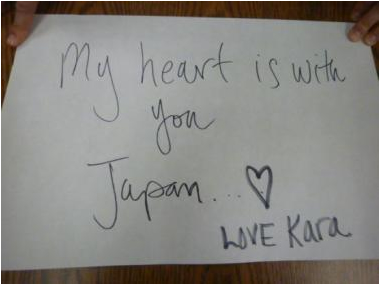 My heart is with
you
Japan... ♡
LOVE Kara